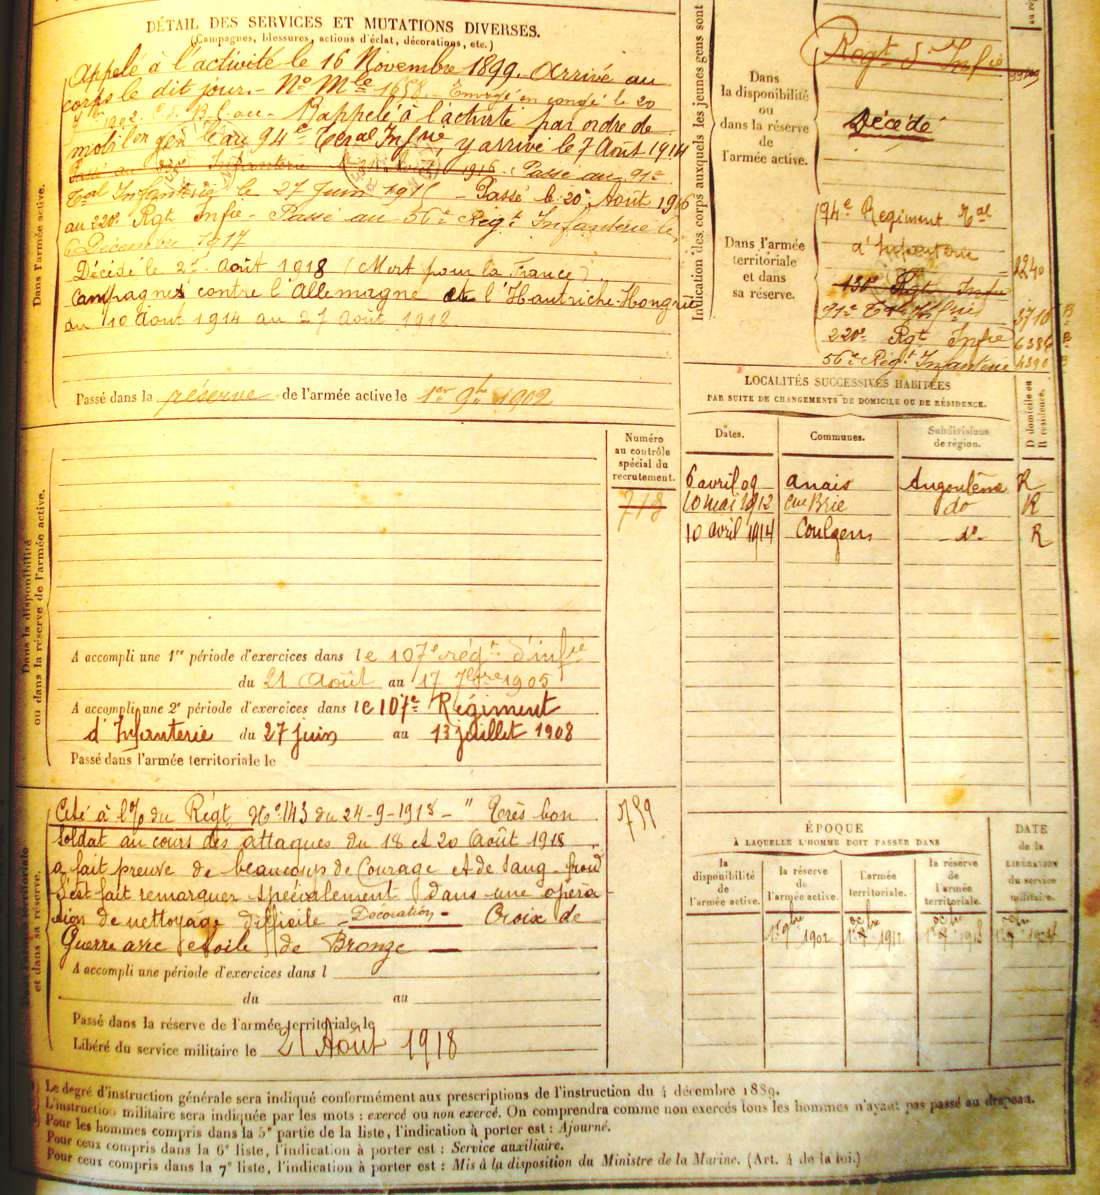 DÉTAIL DES SERVICES ET MUTATIONS DIVERSES.
(Campagnes, blessures, actions d'éclat, décorations, etc.)
Dans l'armée active.
Appelé à l'activité le 16 Novembre 1899. Arrivé au
corps le dit jour. - No Mle 1658. - Envoyé en congé le 20
1902. Rappelé à l'activité par ordre de
mobilon au 94e Teral Infrie, y arrivé le 7 Août 1914
Passé au Infanterie 1916. Passé au 91e
Tal Infanterie le 27 Juin 1915 - Passé le 20 Août 1916
au 220e Rgt Infie - Passé au 56e Régt Infanterie le
6 Décembre 1917
Décédé le Août 1918 (Mort pour la France)
Campagnes contre l'Allemagne et l'Hautriche-Hongrie
du 10 Août 1914 au 27 Août 1918.
Passé dans la réserve de l'armée active le 1er 9bre 1902
Indication des corps auxquels les jeunes gens sont
Dans
la disponibilité
ou
dans la réserve
de
l'armée active.
Regt d'Infie
Décédé
Dans l'armée
territoriale
et dans
sa réserve.
94e Régiment Tal
d'Infanterie
2240
138e Rgt Infie
91e Tal Infrie
3710
220e Rgt Infie
6386
56e Régt Infanterie
4390
LOCALITÉS SUCCESSIVES HABITÉES
PAR SUITE DE CHANGEMENTS DE DOMICILE OU DE RÉSIDENCE.
Dates.
Communes.
Subdivisions
de région.
D domicile ou
R résidence.
6 avril 09 Anais Angoulême R
10 mai 1912 Brie do R
10 avril 1914 Coulgens do R
Dans la disponibilité
ou dans la réserve de l'armée active.
Numéro
au contrôle
spécial du
recrutement.
718
A accompli une 1re période d'exercices dans le 107e régt d'infie
du 21 Août au 17 7bre 1905
A accompli une 2e période d'exercices dans le 107e Régiment
d'Infanterie du 27 juin au 13 juillet 1908
Passé dans l'armée territoriale le
Dans l'armée territoriale
et dans sa réserve.
Cité à l'% du Régt No 143 du 24-9-1918 - " Très bon
soldat au cours des attaques du 18 et 20 Août 1918
a fait preuve de beaucoup de Courage et de sang-froid
s'est fait remarquer spécialement dans une opéra
tion de nettoyage difficile - Décoration - Croix de
Guerre avec étoile de Bronze
759
A accompli une période d'exercices dans l
du au
Passé dans la réserve de l'armée territoriale le
Libéré du service militaire le 21 Août 1918
ÉPOQUE
À LAQUELLE L'HOMME DOIT PASSER DANS
la
disponibilité
de
l'armée active.
la réserve
de
l'armée active.
l'armée
territoriale.
la réserve
de
l'armée
territoriale.
DATE
de la
LIBÉRATION
du service
militaire.
1er 9bre 1902
1er octbre 1912
1er octbre 1918
1er octbre
Le degré d'instruction générale sera indiqué conformément aux prescriptions de l'instruction du 4 décembre 1889.
L'instruction militaire sera indiquée par les mots : exercé ou non exercé. On comprendra comme non exercés tous les hommes n'ayant pas passé au drapeau.
Pour les hommes compris dans la 5e partie de la liste, l'indication à porter est : Ajourné.
Pour ceux compris dans la 6e liste, l'indication à porter est : Service auxiliaire.
Pour ceux compris dans la 7e liste, l'indication à porter est : Mis à la disposition du Ministre de la Marine. (Art. 4 de la loi.)